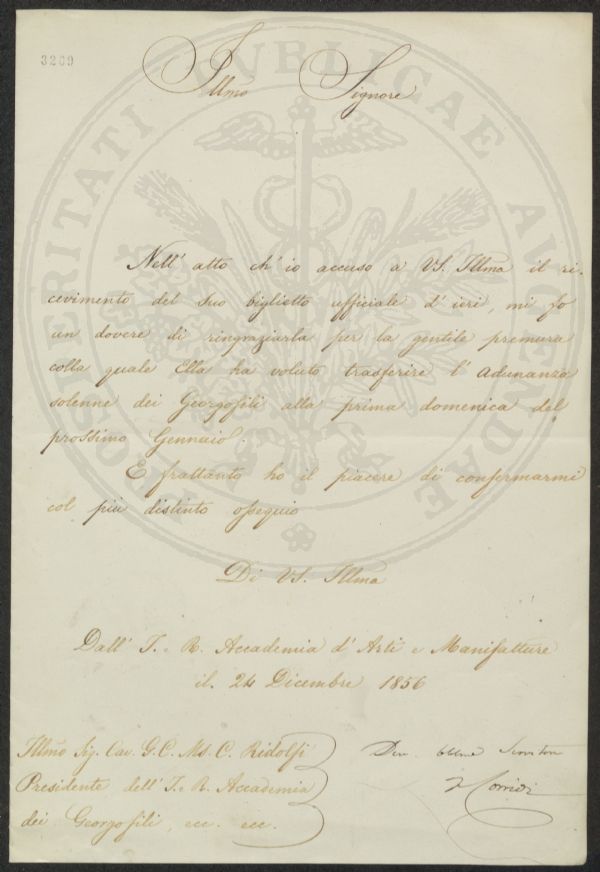 3269
Illmo Signore
Nell' atto ch' io accuso a VS. Illma il ri-
cevimento del suo biglietto ufficiale d' ieri, mi fo
un dovere di ringraziarla per la gentile premura
colla quale Ella ha voluto trasferire l' Adunanza
solenne dei Georgofili alla prima domenica del
prossimo Gennaio.
E frattanto ho il piacere di confermarmi
col più distinto ossequio
Di VS. Illma
Dall' I. e R. Accademia d' Arti e Manifatture
il 24 Dicembre 1856
Illmo Sig. Cav. G. C. Ms. C. Ridolfi
Presidente dell' I. e R. Accademia
dei Georgofili, ecc. ecc.
Dev. Obbmo Servitore
Corridi
PROSPERITATI PUBLICAE AUGENDAE